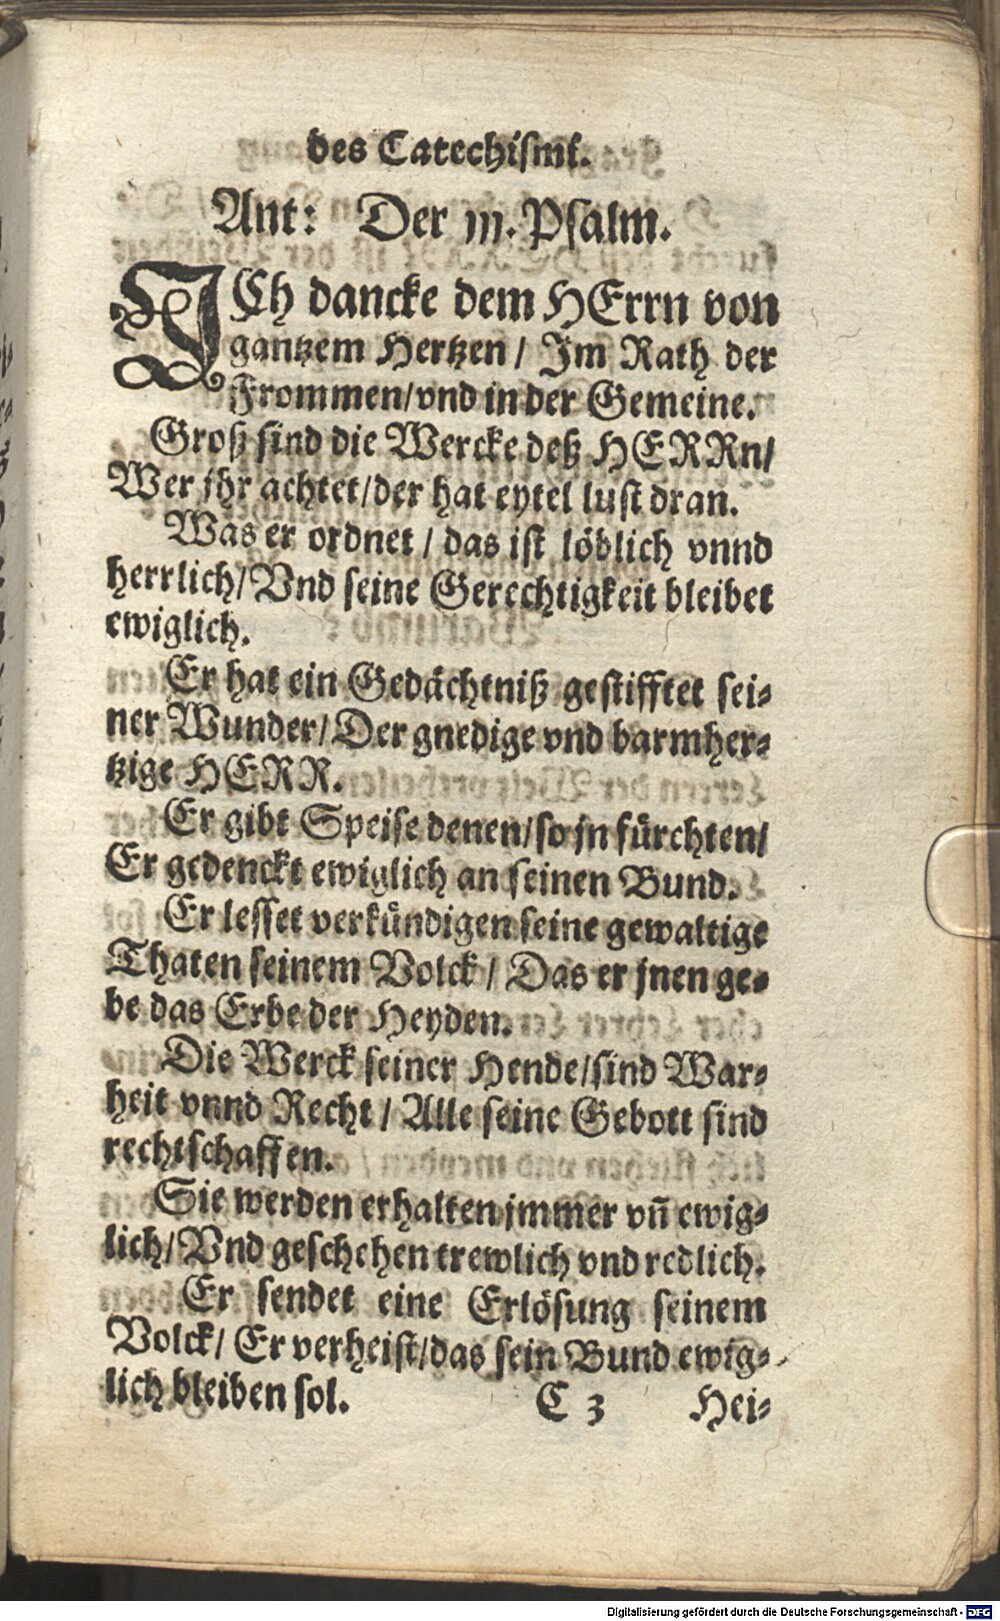 des Catechismi.
Ant: Der 111. Psalm.
ICh dancke dem HErrn von
gantzem Hertzen / Im Rath der
Frommen/vnd in der Gemeine.
Groß sind die Wercke deß HERRn/
Wer jhr achtet/der hat eytel lust dran.
Was er ordnet / das ist löblich vnnd
herrlich/Vnd seine Gerechtigkeit bleibet
ewiglich.
Er hat ein Gedächtniß gestifftet sei-
ner Wunder/Der gnedige vnd barmher-
tzige HERR.
Er gibt Speise denen/so jn fürchten/
Er gedenckt ewiglich an seinen Bund.
Er lesset verkündigen seine gewaltige
Thaten seinem Volck / Das er jnen ge-
be das Erbe der Heyden.
Die Werck seiner Hende/sind War-
heit vnnd Recht / Alle seine Gebott sind
rechtschaffen.
Sie werden erhalten jmmer vn̄ ewig-
lich/Vnd geschehen trewlich vnd redlich.
Er sendet eine Erlösung seinem
Volck/ Er verheist/das sein Bund ewig-
lich bleiben sol. C 3 Hei-
Digitalisierung gefördert durch die Deutsche Forschungsgemeinschaft - DFG